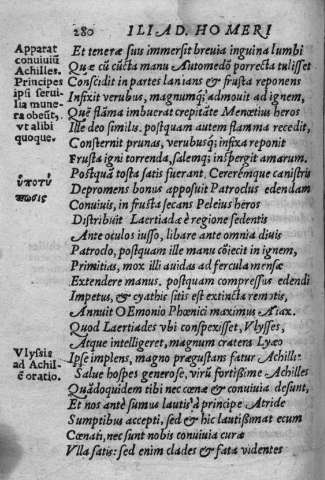 280 ILIAD. HOMERI
Apparat
conuiuiũ
Achilles.
Principes
ipsi serui-
lia mune-
ra obeũt,
vt alibi
quoque.
ὑποτύ
πωσις
Vlyssis
ad Achil-
ẽ oratio.
Et teneræ suis immersit breuia inguina lumbi
Quæ cũ cũcta manu Automedõ porrecta tulisset
Conscidit in partes lanians & frusta reponens
Infixit verubus, magnumq; admouit ad ignem,
Quẽ flãma imbuerat crepitãte Menœtius heros
Ille deo similis. postquam autem flamma recedit,
Consternit prunas, verubusq; infixa reponit
Frusta igni torrenda, salemq; inspergit amarum.
Postquã tosta satis fuerant, Cereremque canistris
Depromens bonus apposuit Patroclus edendam
Conuiuis, in frusta secans Peleius heros
Distribuit Laertiadæ è regione sedentis
Ante oculos iusso, libare ante omnia diuis
Patroclo, postquam ille manu cõiecit in ignem,
Primitias, mox illi auidas ad fercula mensæ
Extendere manus. postquam compressus edendi
Impetus, & cyathis sitis est extincta remotis,
Annuit O Emonio Phœnici maximus Aiax.
Quod Laertiades vbi conspexisset, Vlysses,
Atque intelligeret, magnum cratera Lyæo
Ipse implens, magno prægustans fatur Achilli:
Salue hospes generose, virũ fortißime Achilles
Quãdoquidem tibi nec cœnæ & conuiuia desunt,
Et nos antè sumus lautis à principe Atride
Sumptibus accepti, sed & hic lautißimat ecum
Cœnati, nec sunt nobis conuiuia curæ
Vlla satis: sed enim clades & fata videntes